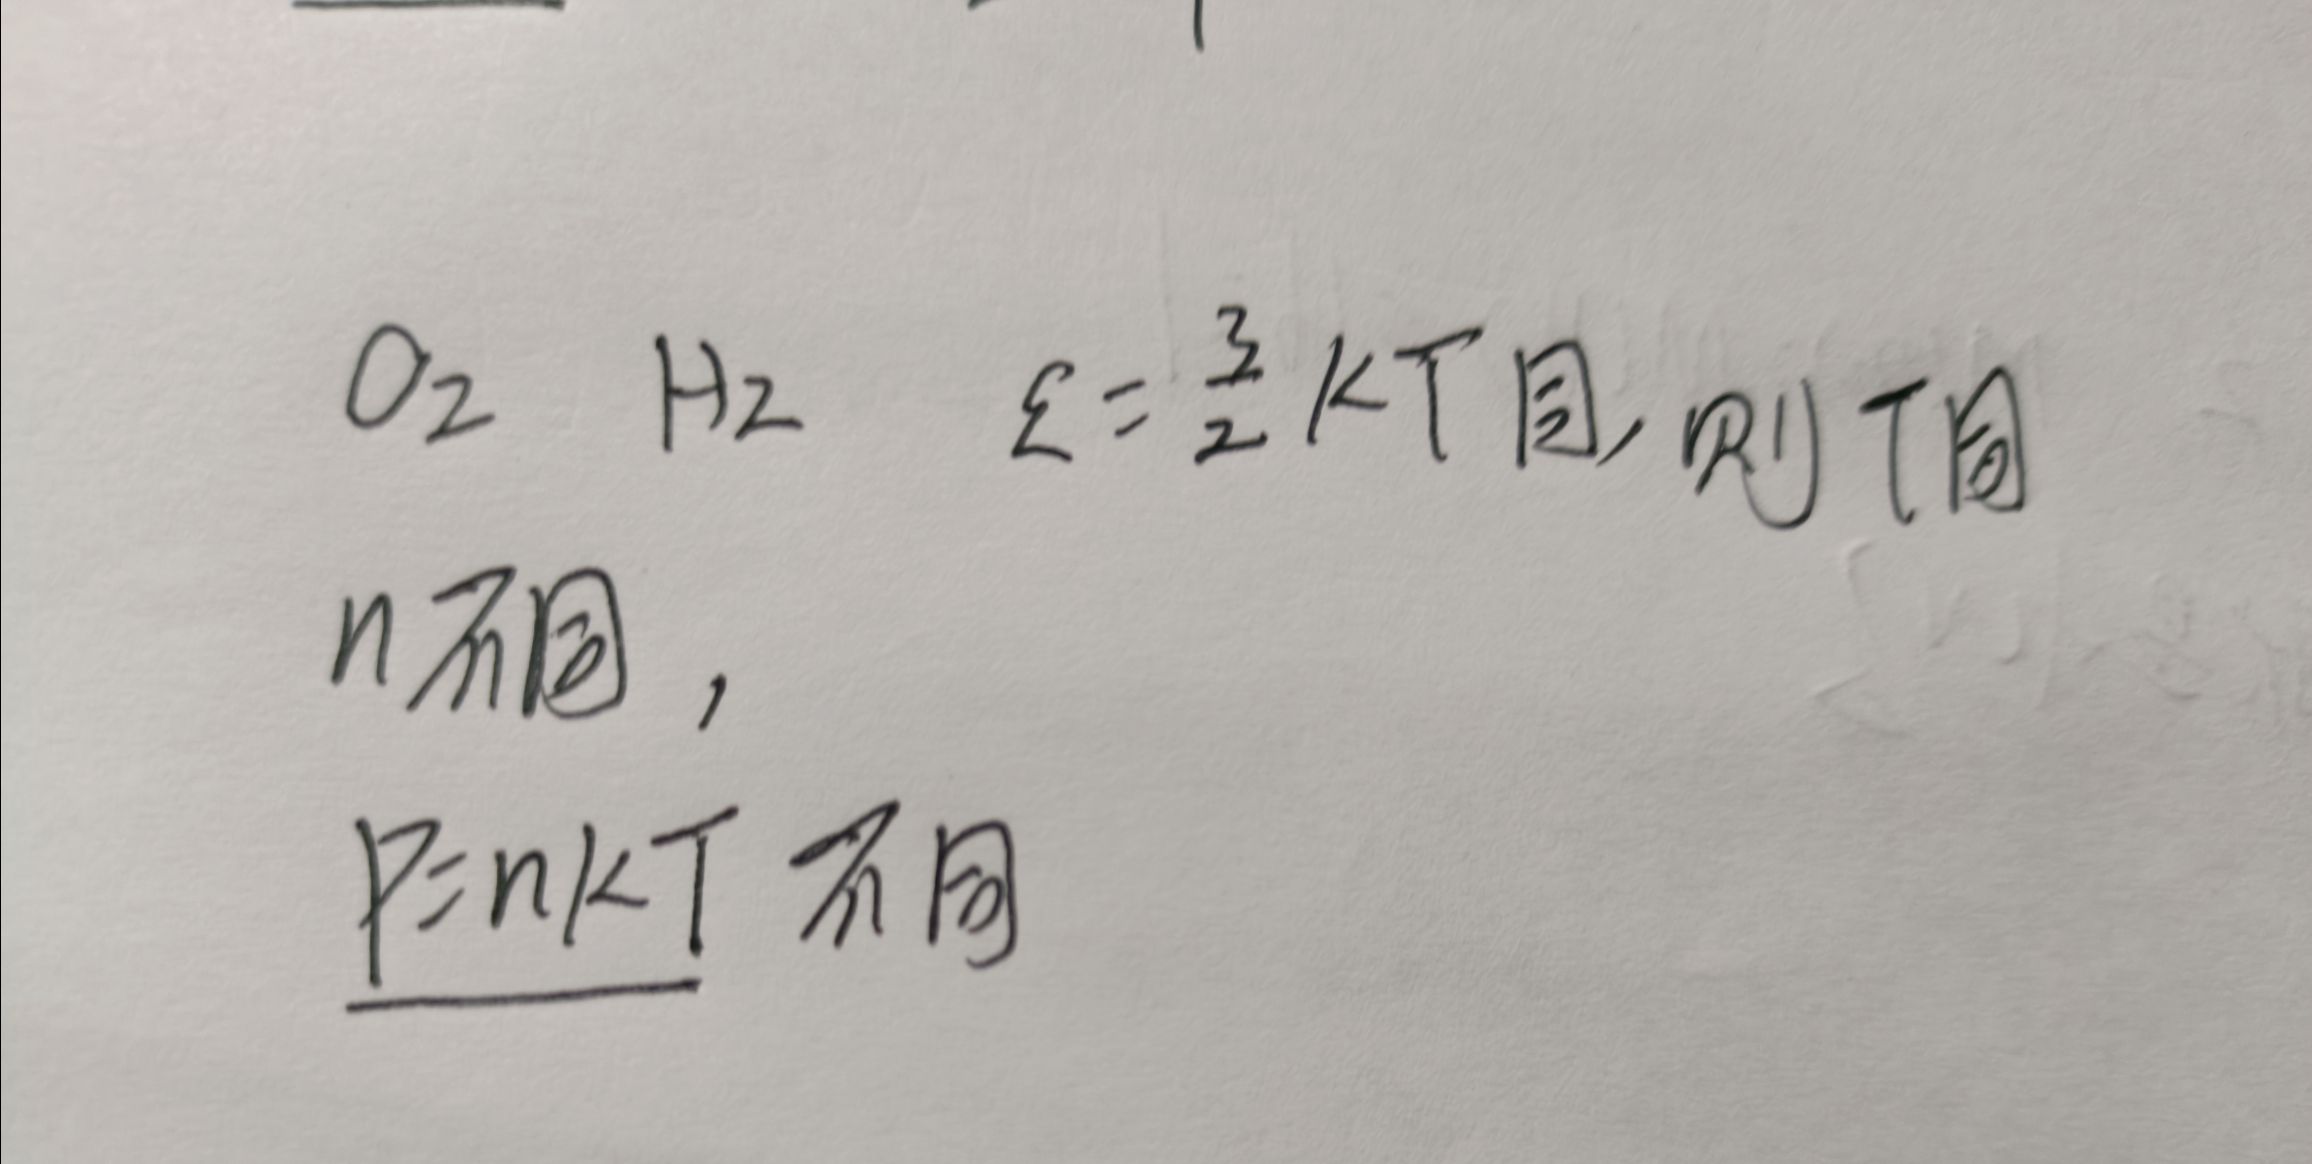 O₂ H₂ ε=3/2 kT同,则T同
n不同,
P=nkT 不同